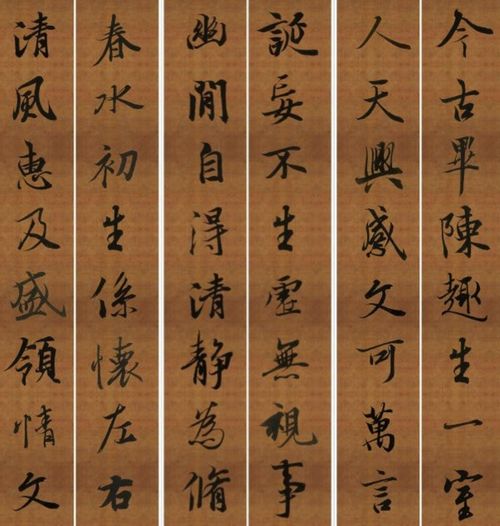 今古畢陳趣生一室
人天興感文可萬言
誕妄不生虛無視事
幽閒自得清静為脩
春水初生係懷左右
清風惠及盛領情文